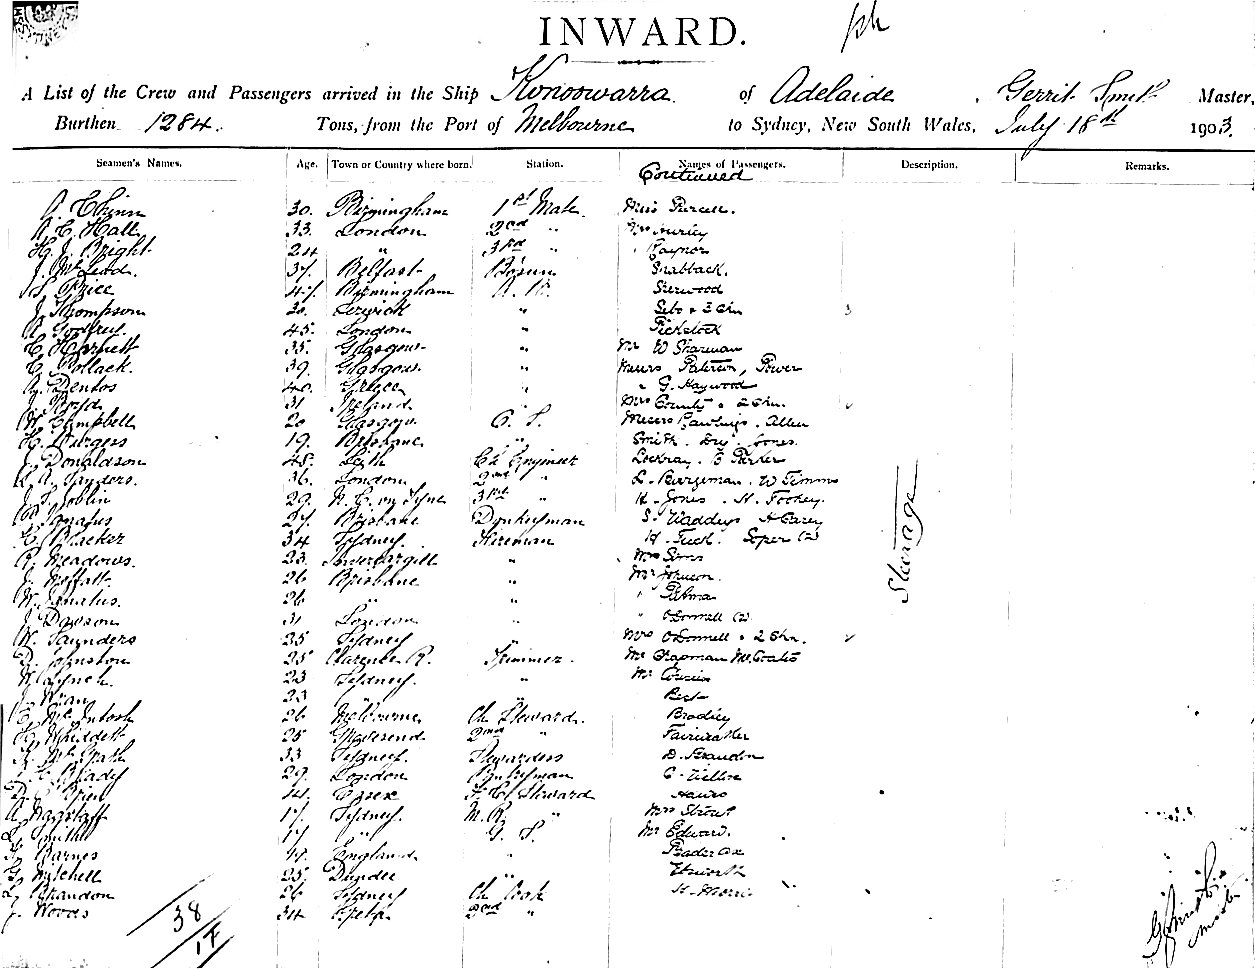 INWARD.
A List of the Crew and Passengers arrived in the Ship Konoowarra of Adelaide, Gerrit Smith Master,
Burthen 1284 Tons, from the Port of Melbourne to Sydney, New South Wales, July 18th 1903.
Seamen's Names. Age. Town or Country where born. Station. Names of Passengers. Description. Remarks.
Continued
A. Chinn 30. Birmingham 1st Mate Miss Purcell.
A. C. Hall 33. London 2nd " Mrs Hurley
H. J. Bright 24 " 3rd " " Raynor
J. McLeod 37. Belfast Bosun Snabback.
S. Price 47. Birmingham A. B. Sherwood
J. Thompson Lerwick " Sebo & 3 Chn 3
A. Godfrey. 45. London " Pickstock
C. Harnett 35. Glasgow " Mr W Sharman
C. Pollack. 39. Glasgow " Messrs Paterson, Power
A. Dentos 40. Greece " " G. Haywood
J. Boyd 31 Ireland " Mrs County & 2 Chn.
W. Campbell 20 Glasgow O. S. Messrs Rawlings. Allen
H. Burgess 19. Brisbane " Smith. Dry. Jones.
Donaldson 45. Leith Ch Engineer Lockray. E Parker
A. A. Sanders. 36. London 2nd " L. Burgeman. W Timms
J. T. Joblin 29. N. C. on Tyne 3rd " H. Jones. H. Fookey.
Ignatus 27 Brisbane Donkeyman S. Waddup A Carey
C. Blacker 34 Sydney. Fireman H. Tuck. Soper (2)
R. Meadows. 23. Invercargill " Mrs Sims
J. Moffatt 26 Brisbane " Mr Johnson.
W. Ignatus. 26 " " " Palma
J. Dawson 31 London " " O'Donnell (2)
W. Saunders 35 Sydney " Mrs O'Donnell & 2 Chn.
D. Johnston 25 Clarence R. Trimmer. Mr Chapman McCoats
W. Lynch. 23 Sydney. " Mr
J. 23 " " Best
McIntosh 26 Melbourne Ch Steward. Bradley
H. Whiddett 25 Gravesend 2nd " Fairweather
McGrath 33 Sydney. Stewardess D. Brandon
Brady 29. London Pantryman C.
O'Brien 41 Essex F. C. Steward Hawes
A. Wagstaff 17. Sydney. M. R. " Mrs
Smith 17 " G. S. Mr Edward.
Barnes 19. England " Baader
G. Mitchell 25. Dundee "
Brandon 26 Sydney Ch Cook H. Morris
J. Woods 34 2nd "
Steerage
38
17
G Smith
Master